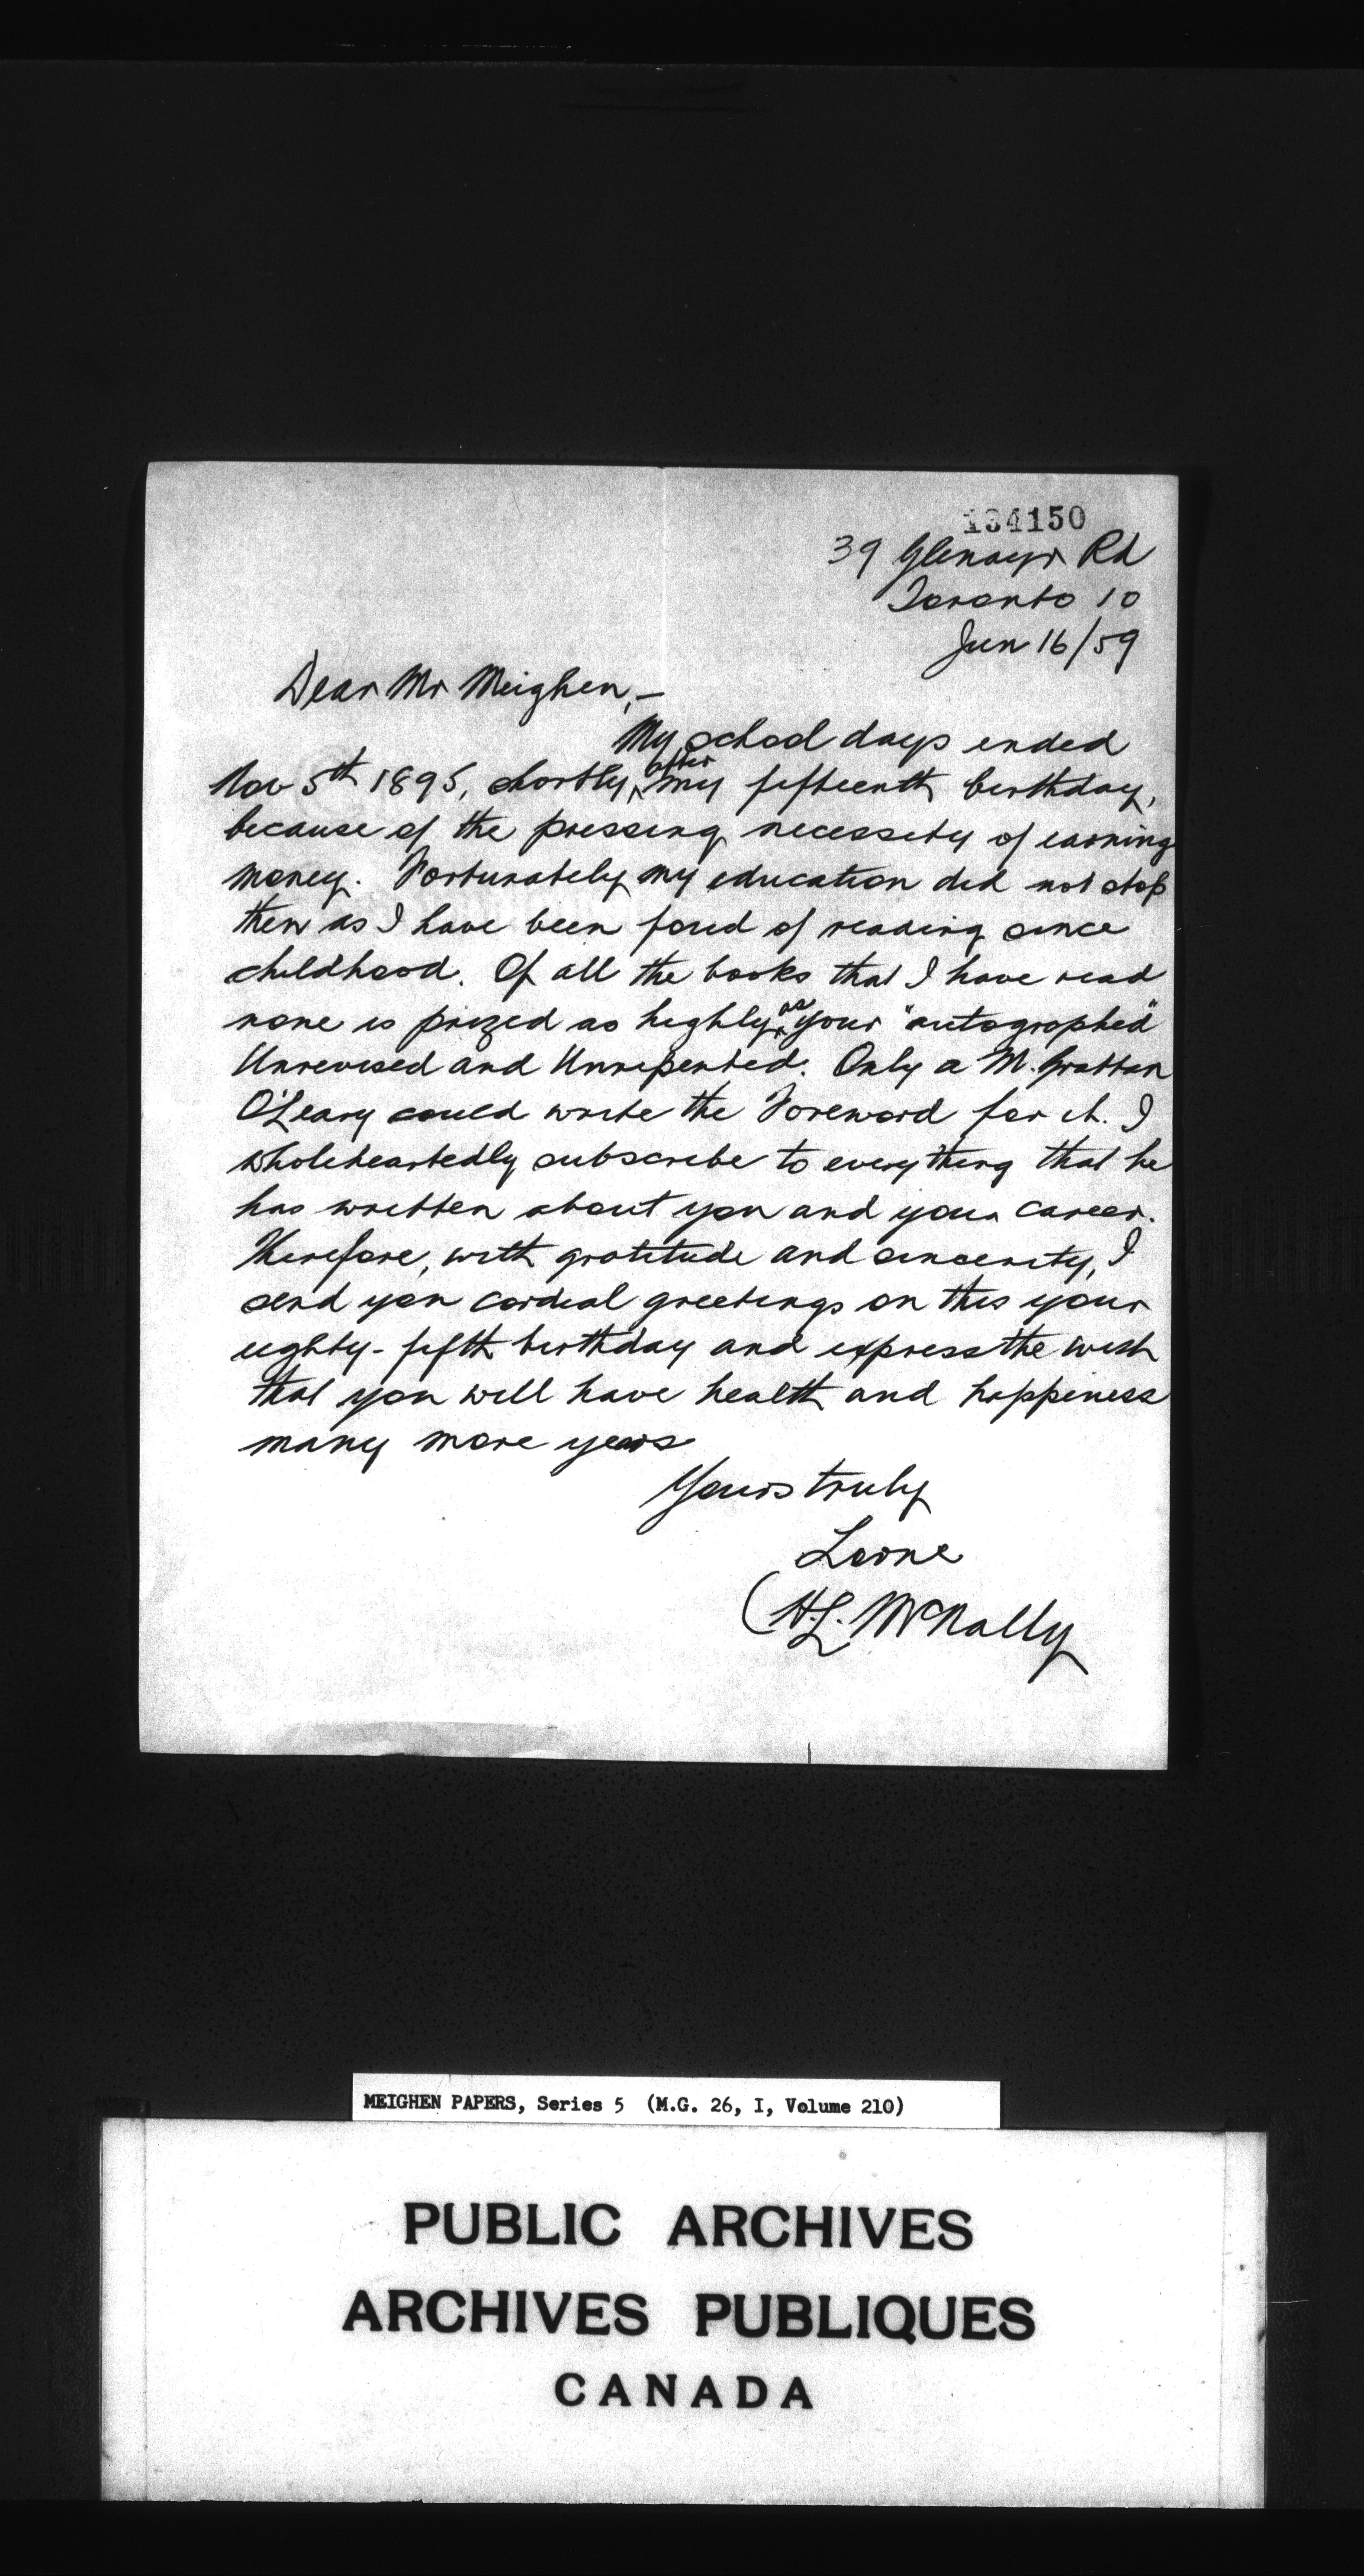 134150
39 Glenayr Rd
Toronto 10
Jun 16/59
Dear Mr Meighen,—
My school days ended
Nov 5th 1895, shortly after my fifteenth birthday,
because of the pressing necessity of earning
money. Fortunately my education did not stop
then as I have been fond of reading since
childhood. Of all the books that I have read
none is prized as highly as your "autographed"
Unrevised and Unrepented. Only a M. Grattan
O'Leary could write the Foreword for it. I
wholeheartedly subscribe to everything that he
has written about you and your career.
Therefore, with gratitude and sincerity, I
send you cordial greetings on this your
eighty-fifth birthday and express the wish
that you will have health and happiness
many more years
Yours truly
Lorne
(H.L. McNally
MEIGHEN PAPERS, Series 5 (M.G. 26, I, Volume 210)
PUBLIC ARCHIVES
ARCHIVES PUBLIQUES
CANADA